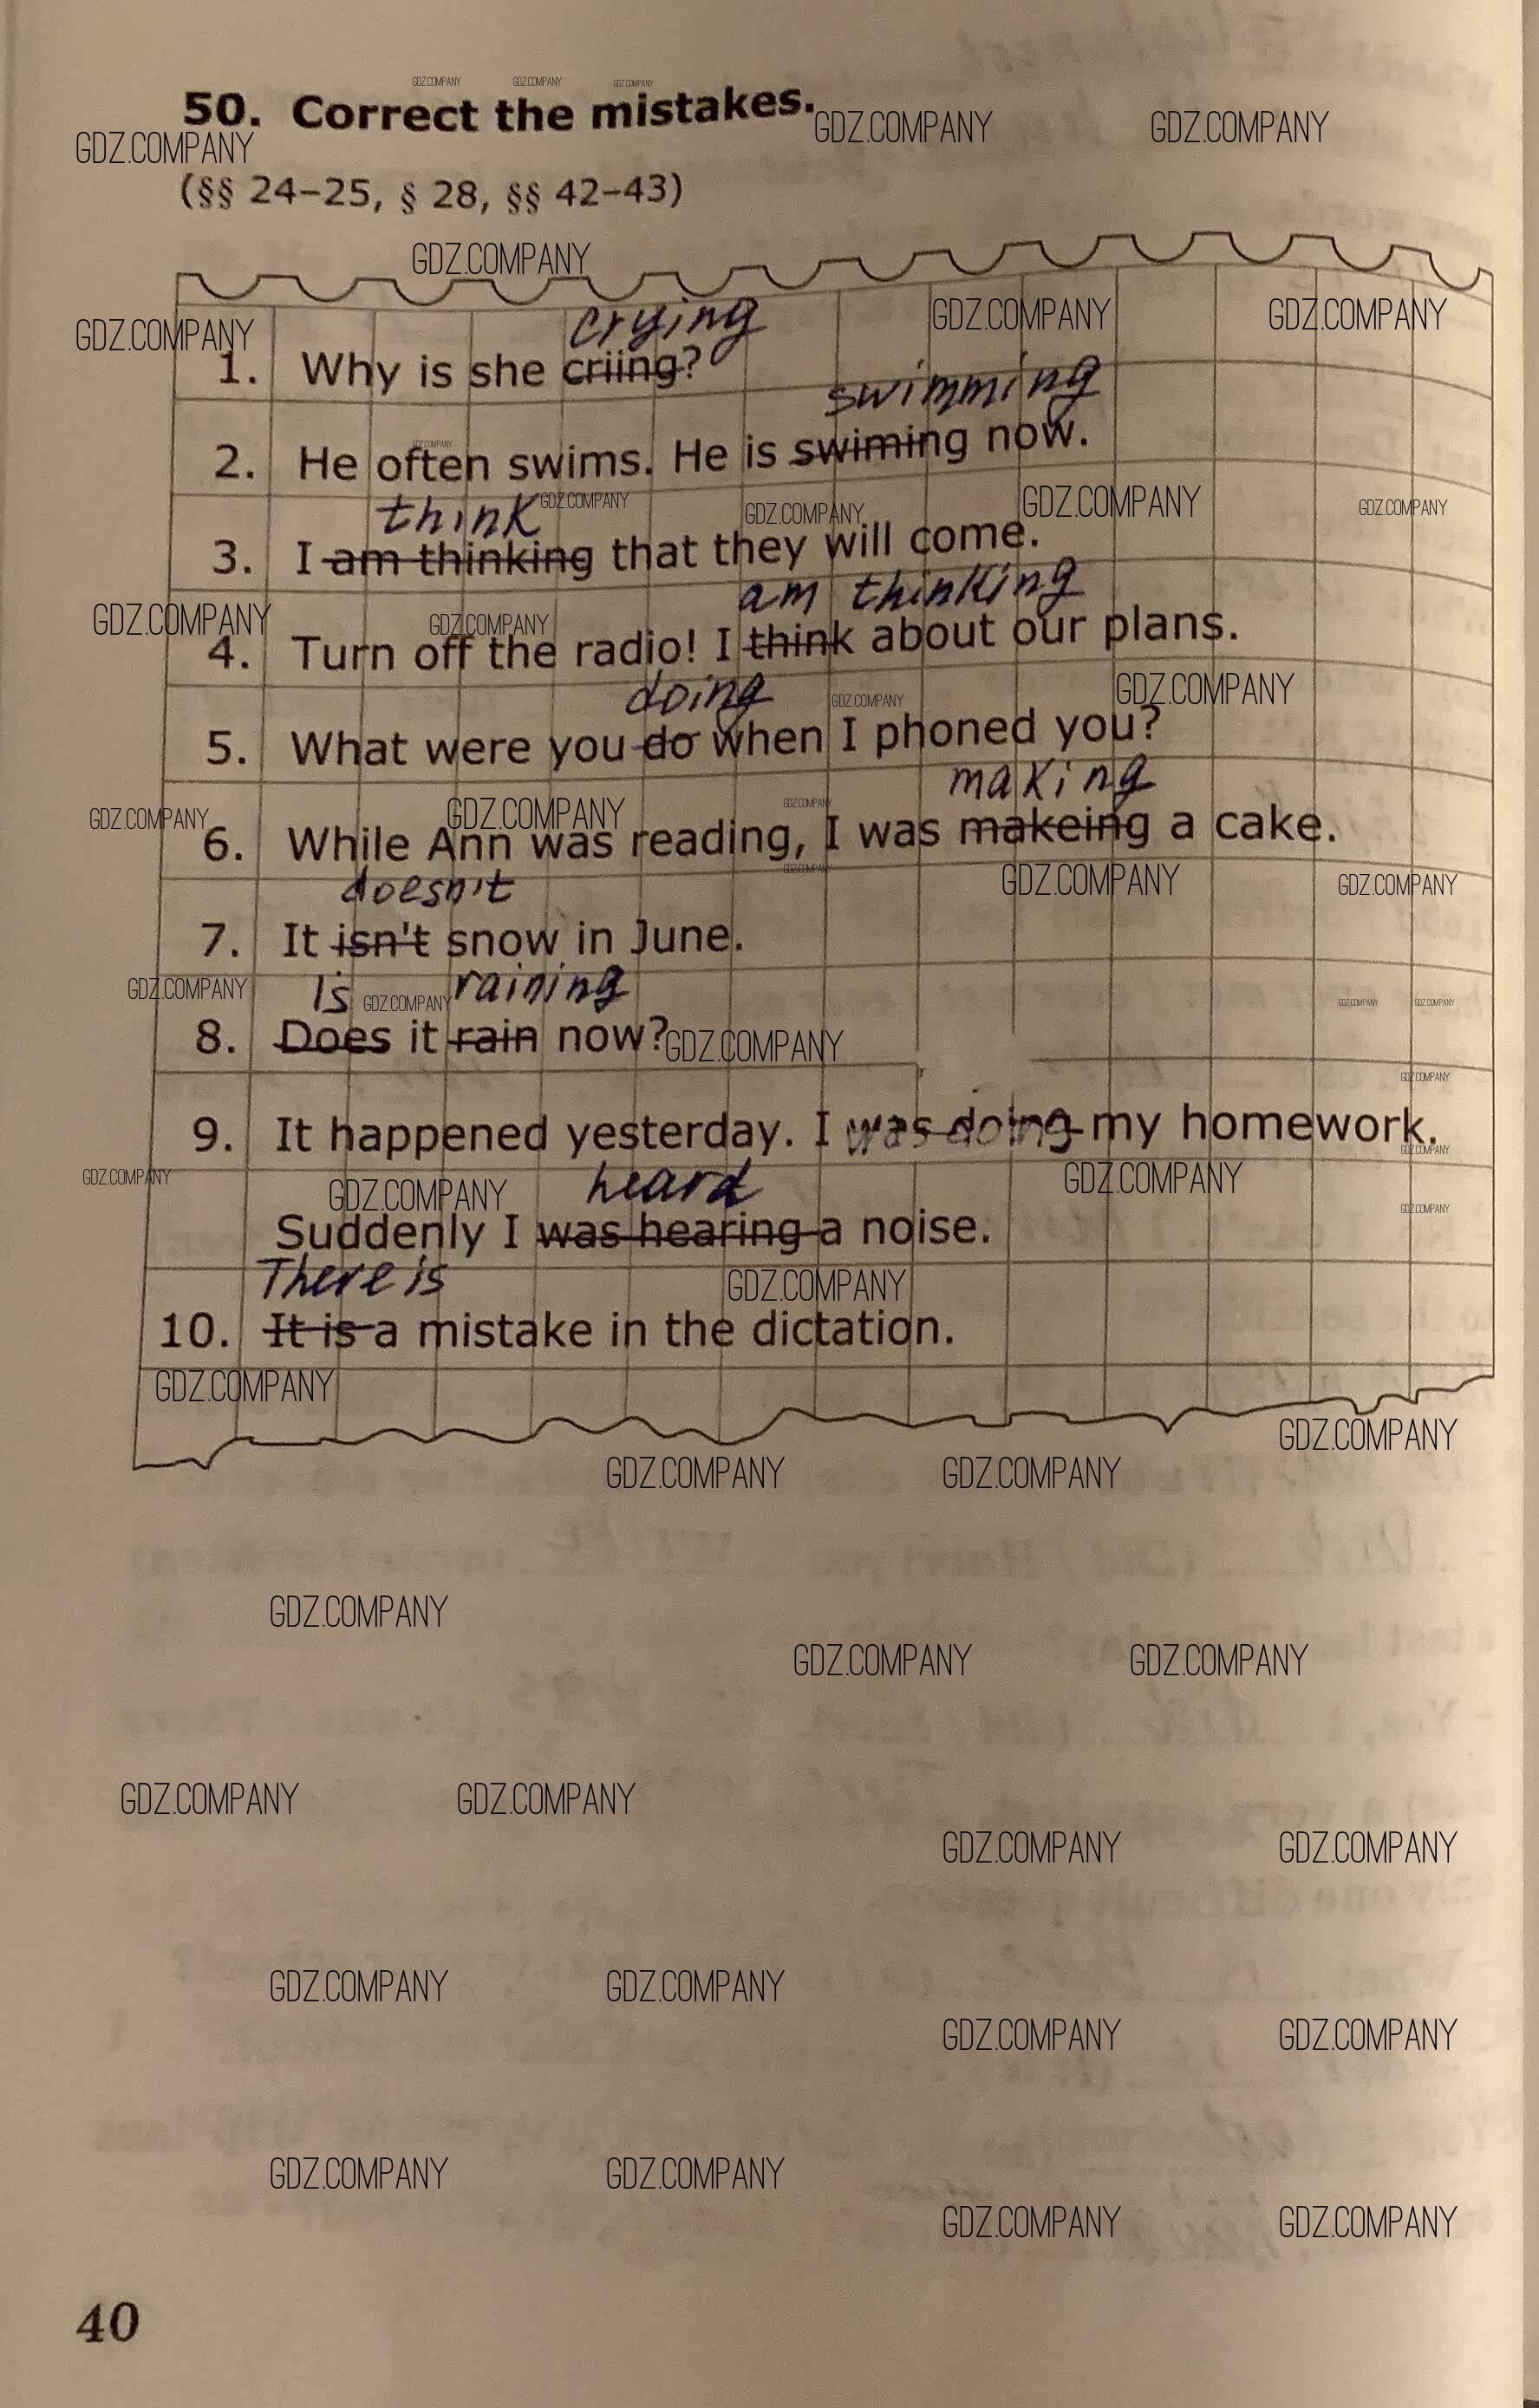 50. Correct the mistakes.
(§§ 24–25, § 28, §§ 42–43)
crying
1. Why is she criing?
swimming
2. He often swims. He is swiming now.
think
3. I am thinking that they will come.
am thinking
4. Turn off the radio! I think about our plans.
doing
5. What were you do when I phoned you?
making
6. While Ann was reading, I was makeing a cake.
doesn't
7. It isn't snow in June.
Is raining
8. Does it rain now?
9. It happened yesterday. I was doing my homework.
heard
Suddenly I was hearing a noise.
There is
10. It is a mistake in the dictation.
40
GDZ.COMPANY